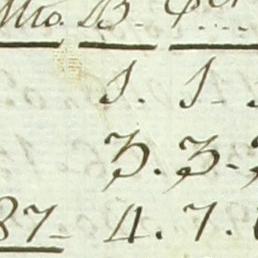 Mto. D.
1. 1-
3. 3-
87- 4. 7.